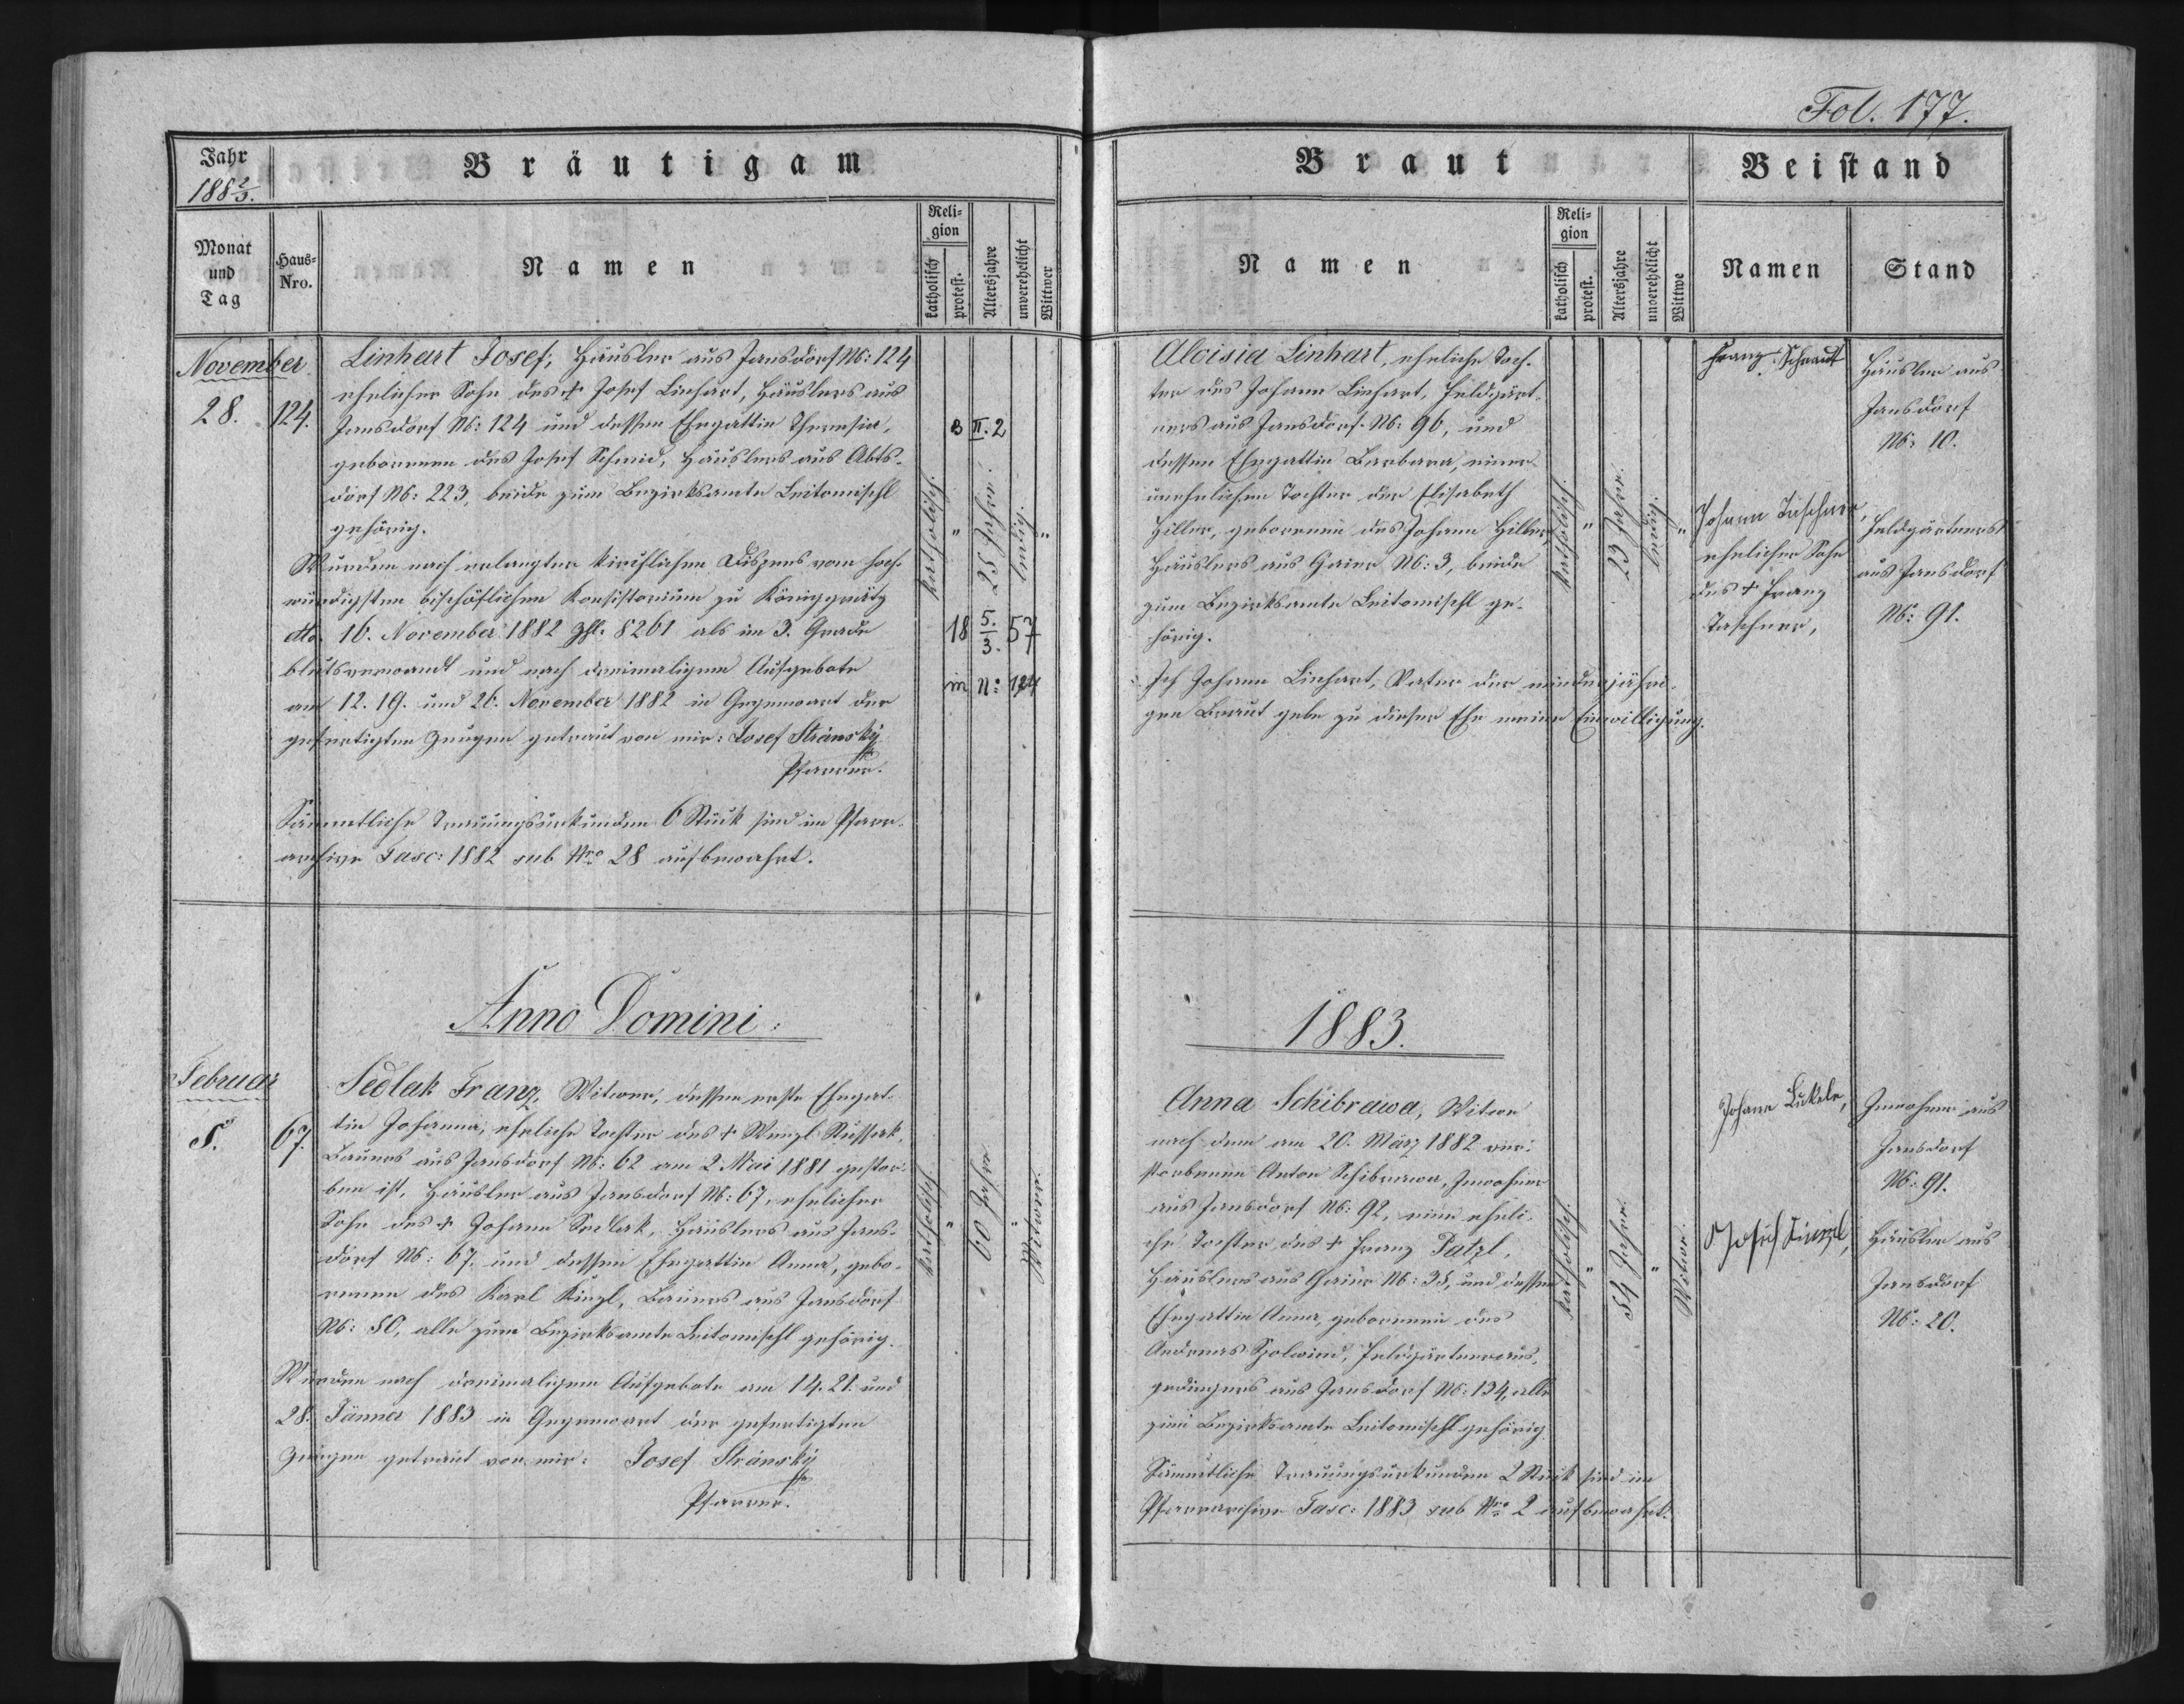 Fol. 177.
Jahr
1882/3.
Bräutigam
Braut
Beistand
Monat
und
Tag
Haus-
Nro.
Namen
Reli-
gion
katholisch
protest.
Altersjahre
unverehelicht
Wittwer
Namen
Reli-
gion
katholisch
protest.
Altersjahre
unverehelicht
Wittwe
Namen
Stand
November
28.
124.
Linhart Josef, Häusler aus Jansdorf N: 124
ehelicher Sohn des + Josef Linhart, Häuslers aus
Jansdorf N: 124 und dessen Ehegattin Theresia,
geborenen des Josef Schmid, Häuslers aus Abts-
dorf N: 223, beide zum Bezirksamte Leitomischl
gehörig.
Wurden nach erlangter kirchlichen Dispens vom hoch-
würdigsten bischöflichen Konsistorium zu Königgrätz
dto 16. November 1882 Zhl. 8261 als im 3. Grade
blutsverwandt und nach dreimaligem Aufgebote
am 12. 19. und 26. November 1882 in Gegenwart der
gefertigten Zeugen getraut von mir: Josef Stránský
Pfarrer.
Sämmtliche Trauungsurkunden 6 Stück sind im Pfarr-
archive Fasc: 1882 sub Nro 28 aufbewahrt.
katholisch.
"
25 Jahre.
ledig.
"
B II. 2
18 5./3. 57
in N: 124
Aloisia Linhart, eheliche Toch-
ter des Johann Linhart, Feldgärt-
ners aus Jansdorf N: 96, und
dessen Ehegattin Barbara, einer
unehelichen Tochter der Elisabeth
Hiller, geborenen des Johann Hiller,
Häuslers aus Gaier N: 3, beide
zum Bezirksamte Leitomischl ge-
hörig.
Ich Johann Linhart, Vater der minderjähri-
gen Braut gebe zu dieser Ehe meine Einwilligung.
katholisch.
"
23 Jahre.
ledig.
"
Franz Schraut
Häusler aus
Jansdorf
N: 10.
Johann Taschner,
ehelicher Sohn
des + Franz
Taschner,
Feldgärtners
aus Jansdorf
N: 91.
Anno Domini:
1883.
Februar
5.
67.
Sedlak Franz, Witwer, dessen erste Ehegat-
tin Johanna, eheliche Tochter des + Wenzl
Bauers aus Jansdorf N: 62 am 2 Mai 1881 gestor-
ben ist, Häusler aus Jansdorf N: 67, ehelicher
Sohn des + Johann Sedlak, Häuslers aus Jans-
dorf N: 67. und dessen Ehegattin Anna, gebo-
renen des Karl Kinzl, Bauers aus Jansdorf
N: 50, alle zum Bezirksamte Leitomischl gehörig.
Wurden nach dreimaligem Aufgebote am 14. 21. und
28. Jänner 1883 in Gegenwart der gefertigten
Zeugen getraut von mir: Josef Stránský
Pfarrer.
katholisch
"
60 Jahre
"
Witwer.
Anna Schibrawa, Witwe
nach dem am 20. März 1882 ver-
storbenen Anton Schibrawa, Inwohner
aus Jansdorf N: 92, eine eheli-
che Tochter des + Franz Patzl,
Häuslers aus Gaier N: 35, und dessen
Ehegattin Anna, geborenen des
Andreas Feldgärtneraus-
gedingers aus Jansdorf N: 134, alle
zum Bezirksamte Leitomischl gehörig
Sämmtliche Trauungsurkunden 2 Stück sind im
Pfarrarchive Fasc: 1883 sub Nro 2 aufbewahrt.
katholisch.
"
54 Jahre.
"
Witwe.
Johann Lukele,
Inwohner aus
Jansdorf
N: 91.
Josef Kinzl,
Häusler aus
Jansdorf
N: 20.